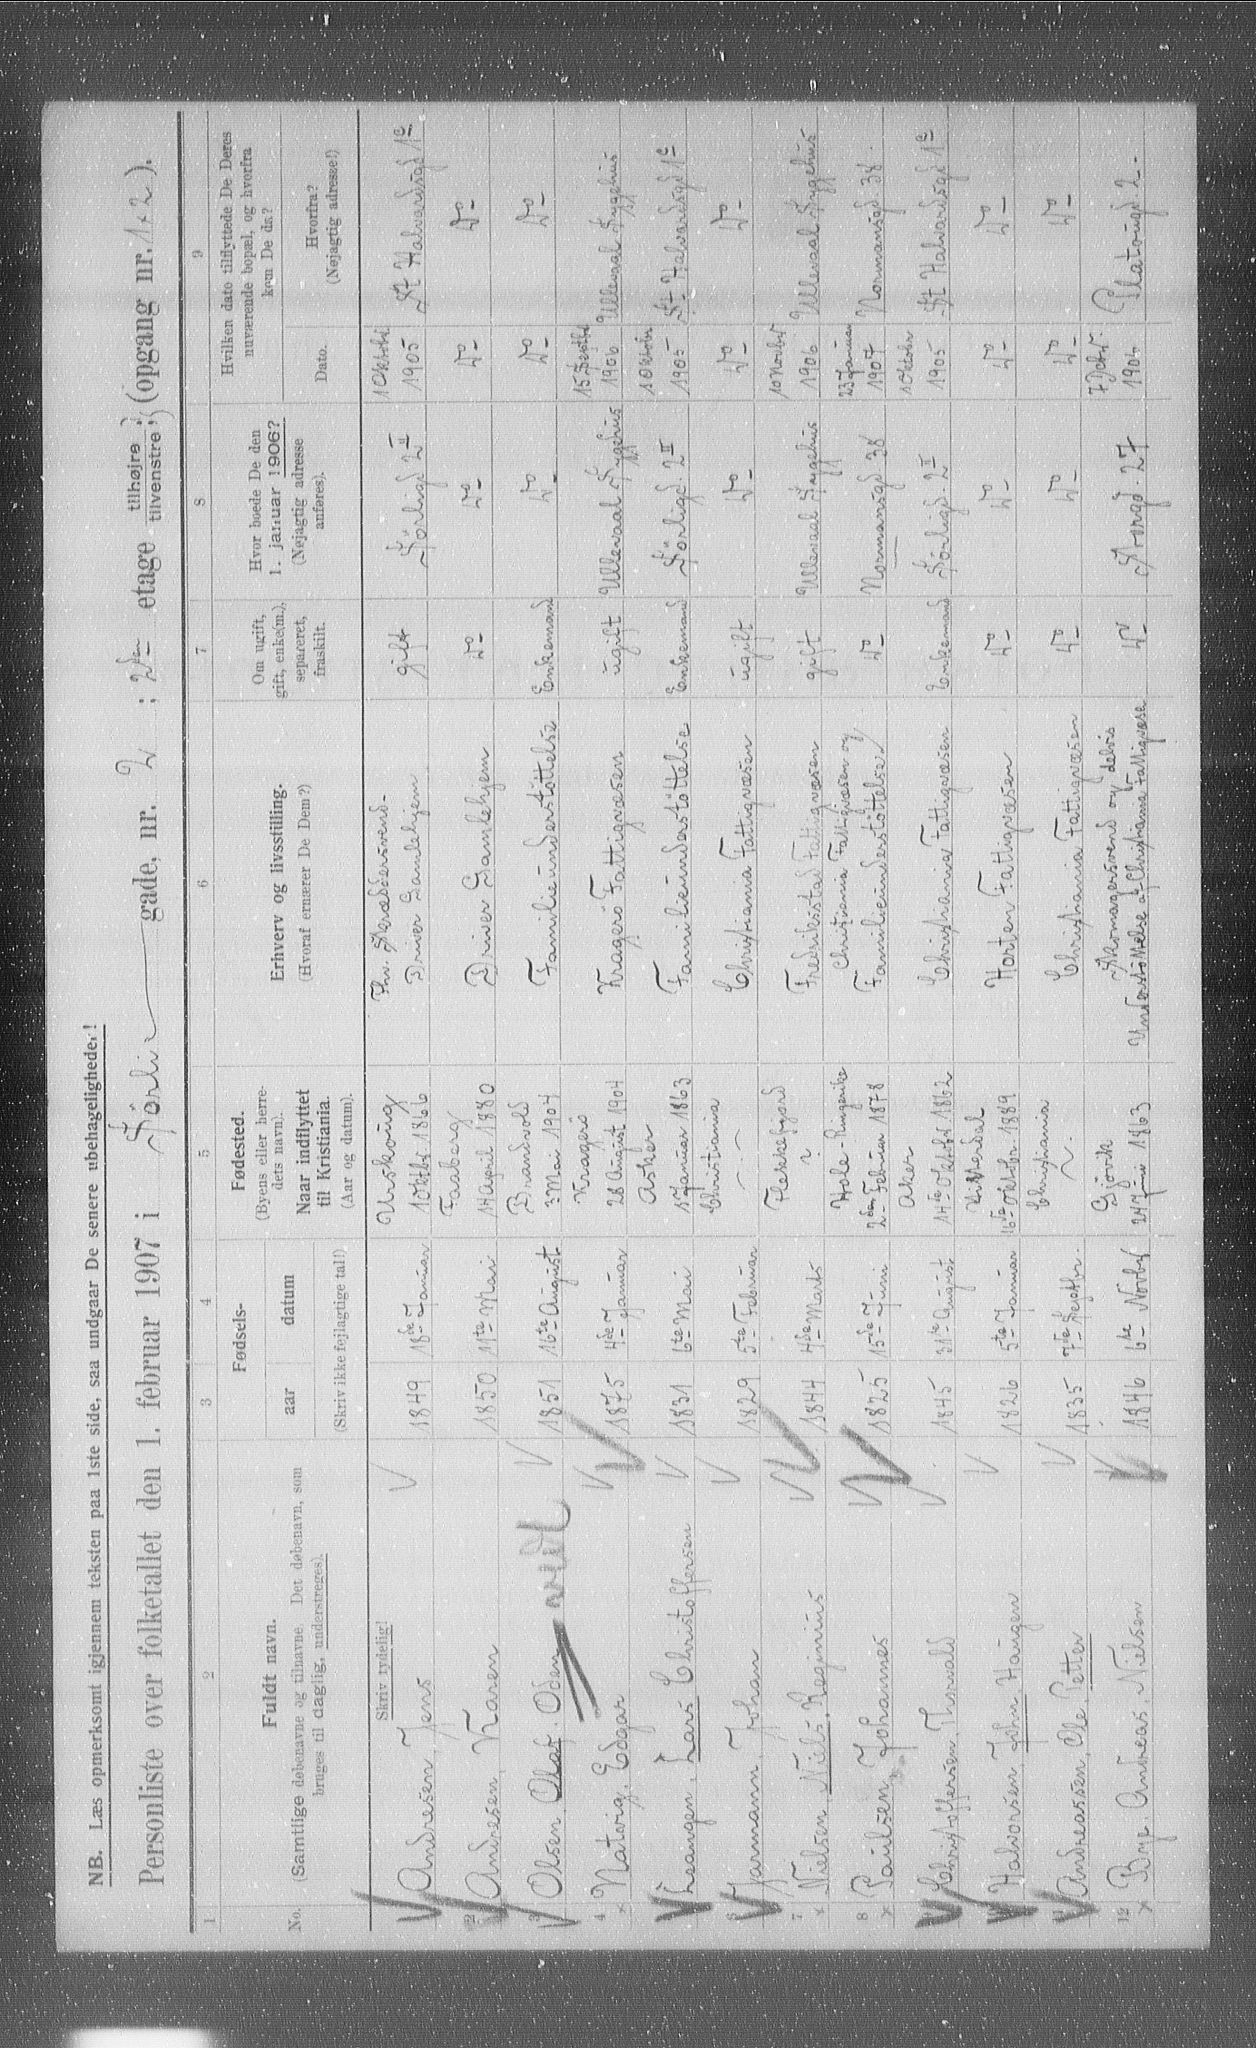 NB. Læs opmerksomt igjennem teksten paa 1ste side, saa undgaar De senere ubehageligheder!
Personliste over folketallet den 1. februar 1907 i Sörli gade, nr. 2 ; 2den etage tilhøjre, tilvenstre, (opgang nr. 1 x 2).
1 2 3 4 5 6 7 8 9
No.
Fuldt navn.
(Samtlige døbenavne og tilnavne. Det døbenavn, som
bruges til daglig, understreges).
Skriv tydelig!
Fødsels-
aar datum
(Skriv ikke fejlagtige tal!)
Fødested.
(Byens eller herre-
dets navn).
Naar indflyttet
til Kristiania.
(Aar og datum).
Erhverv og livsstilling.
(Hvoraf ernærer De Dem?)
Om ugift,
gift, enke(m.),
separeret,
fraskilt.
Hvor boede De den
1. januar 1906?
(Nøjagtig adresse
anføres).
Hvilken dato tilflyttede De Deres
nuværende bopæl, og hvorfra
kom De da?
Dato.
Hvorfra?
(Nøjagtig adresse!)
Andresen, Jens 1849 18de Januar Urskoug 1 Oktbr 1866 Fhv. Skræddersvend - Driver Gamlehjem gift Sörligd 2 II 1 Oktobr 1905 St Halvardsgd 1c
2 Andresen, Karen 1850 11te Mai Faaberg 14 April 1880 Driver Gamlehjem do do do do
3 Olsen, Olaf. Oden 1851 16te August Brandvold 3 Mai 1904 Familieunderstöttelse Enkemand do do do
4 x Natvig, Edgar 1875 4de Januar Kragerö 28 August 1904 Kragerö Fattigvæsen ugift Ullevaal Sygehus 15 Septbr 1906 Ullevaal Sygehus
Leangen, Lars Christoffersen 1831 6te Mai Asker 1 Januar 1863 Familieunderstøttelse Enkemand Sörligd. 2 II 1 Oktobr 1905 St Halvardsgd 1c
Jarmann, Johan 1829 5te Februar Christiania Christiania Fattigvæsen ugift do do do
7 x Nielsen, Niels, Reginius 1844 4de Marts Flekkefjord ? Fredriksstad Fattigvæsen gift Ullevaal Sygehus 10 Novbr 1906 Ullevaal Sygehus
8 x Paulsen, Johannes 1825 15de Juni Hole Ringerike 2den Februar 1878 Christiania Fattigvæsen og Familieunderstöttelse do Normansgd 38 23 Januar 1907 Normansgd 38
Christoffersen, Thorvald 1845 31te August Aker 14de Oktobr 1862 Christiania Fattigvæsen Enkemand Sörligd. 2 II 1 Oktobr 1905 St Halvardsgd 1c
Halvorsen, John, Haugen 1826 5te Januar 16de Oktobr 1889 Horten Fattigvæsen do do do do
Andreassen, Ole, Petter 1835 7de Septbr. Christiania Christiania Fattigvæsen do do do do
12 x Bye, Andreas, Nielsen 1846 6te Novbr Gjövik 24 Juni 1863 Skomagersvend og delvis Understöttelse af Christiania Fattigvæse do 27 7 Debr. 1906 Platougd 2 -